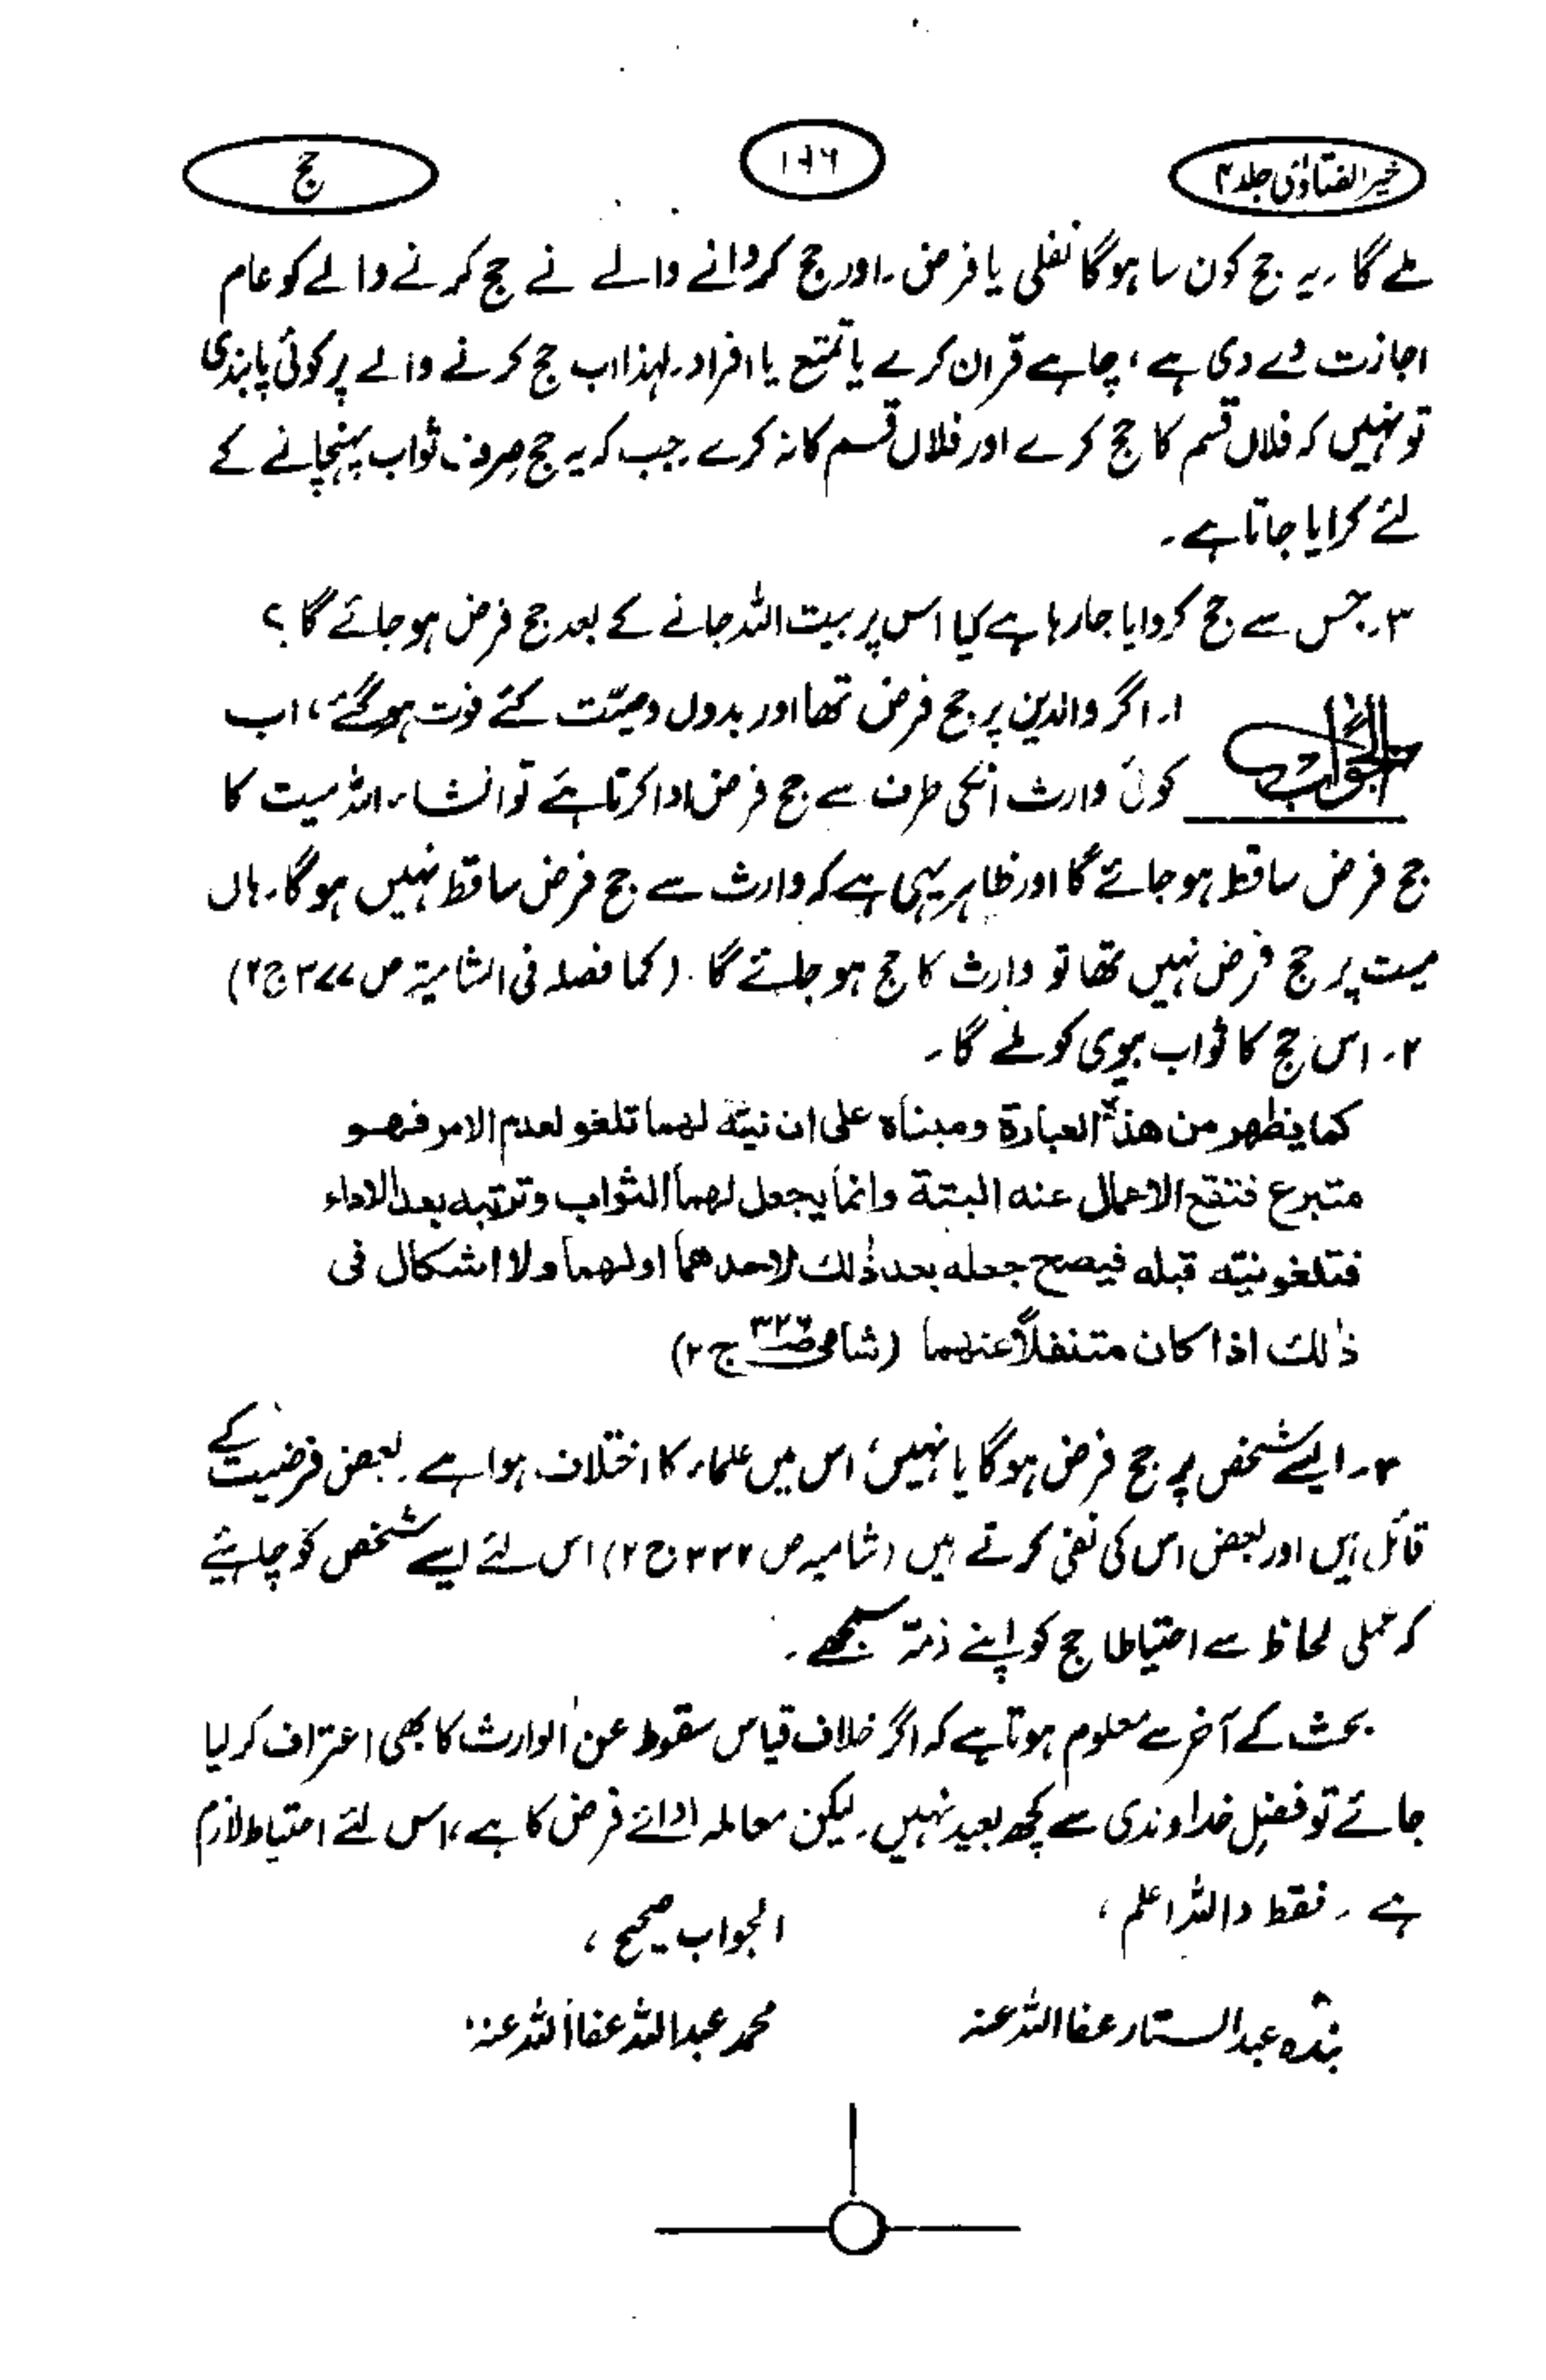 خیر الفتاویٰ جلد ۴
۱۶۶
حج
ملے گا۔ یہ حج کون سا ہوگا نفلی یا فرض۔ اور حج کروانے والے نے حج کرنے والے کو عام
اجازت دے دی ہے، چاہے قران کرے یا تمتع یا افراد۔ لہذا اب حج کرنے والے پر کوئی پابندی
تو نہیں کہ فلاں قسم کا حج کرے اور فلاں قسم کا نہ کرے جب کہ یہ حج صرف ثواب پہنچانے کے
لئے کرایا جاتا ہے۔
۳۔ جس سے حج کروایا جا رہا ہے کیا اس پر بیت اللہ جانے کے بعد حج فرض ہو جائے گا؟
الجواب
۱۔ اگر والدین پر حج فرض تھا اور بدوں وصیّت کئے فوت ہو گئے، اب
کوئی وارث انکی طرف سے حج فرض ادا کرتا ہے تو انشاء اللہ میت کا
حج فرض ساقط ہو جائے گا اور ظاہر یہی ہے کہ وارث سے حج فرض ساقط نہیں ہوگا۔ ہاں
میت پر حج فرض نہیں تھا تو وارث کا حج ہو جائے گا۔ (کما فصلہ فی الشامیۃ ص ۳۷۷ ج ۲)
۲۔ اس حج کا ثواب بیوی کو ملے گا۔
كما يظهر من هذه العبارة ومبناه على ان نيته لهما تلغو لعدم الامر فهو
متبرع فتقع الاعمال عنه البتة وانما يجعل لهما الثواب وترتبه بعد الاداء
فتلغو نيته قبله فيصح جعله بعد ذلك لاحدهما او لهما ولا اشكال فى
ذلك اذا كان متنفلاً عنهما (شامى ج ۲)
۳۔ ایسے شخص پر حج فرض ہوگا یا نہیں؛ اس میں علماء کا اختلاف ہوا ہے۔ بعض فرضیت کے
قائل ہیں اور بعض اس کی نفی کرتے ہیں (شامیہ ص ۳۳۲ ج ۲) اس لئے ایسے شخص کو چاہیئے
کہ عملی لحاظ سے احتیاطا حج کو اپنے ذمّہ سمجھے۔
بحث کے آخر سے معلوم ہوتا ہے کہ اگر خلاف قیاس سقوط عن الوارث کا بھی اعتراف کر لیا
جائے تو فضلِ خداوندی سے کچھ بعید نہیں۔ لیکن معاملہ ادائے فرض کا ہے، اس لئے احتیاط لازم
ہے۔ فقط واللہ اعلم،
الجواب صحیح،
بندہ عبدالستار عفا اللہ عنہ
محمد عبداللہ عفا اللہ عنہ